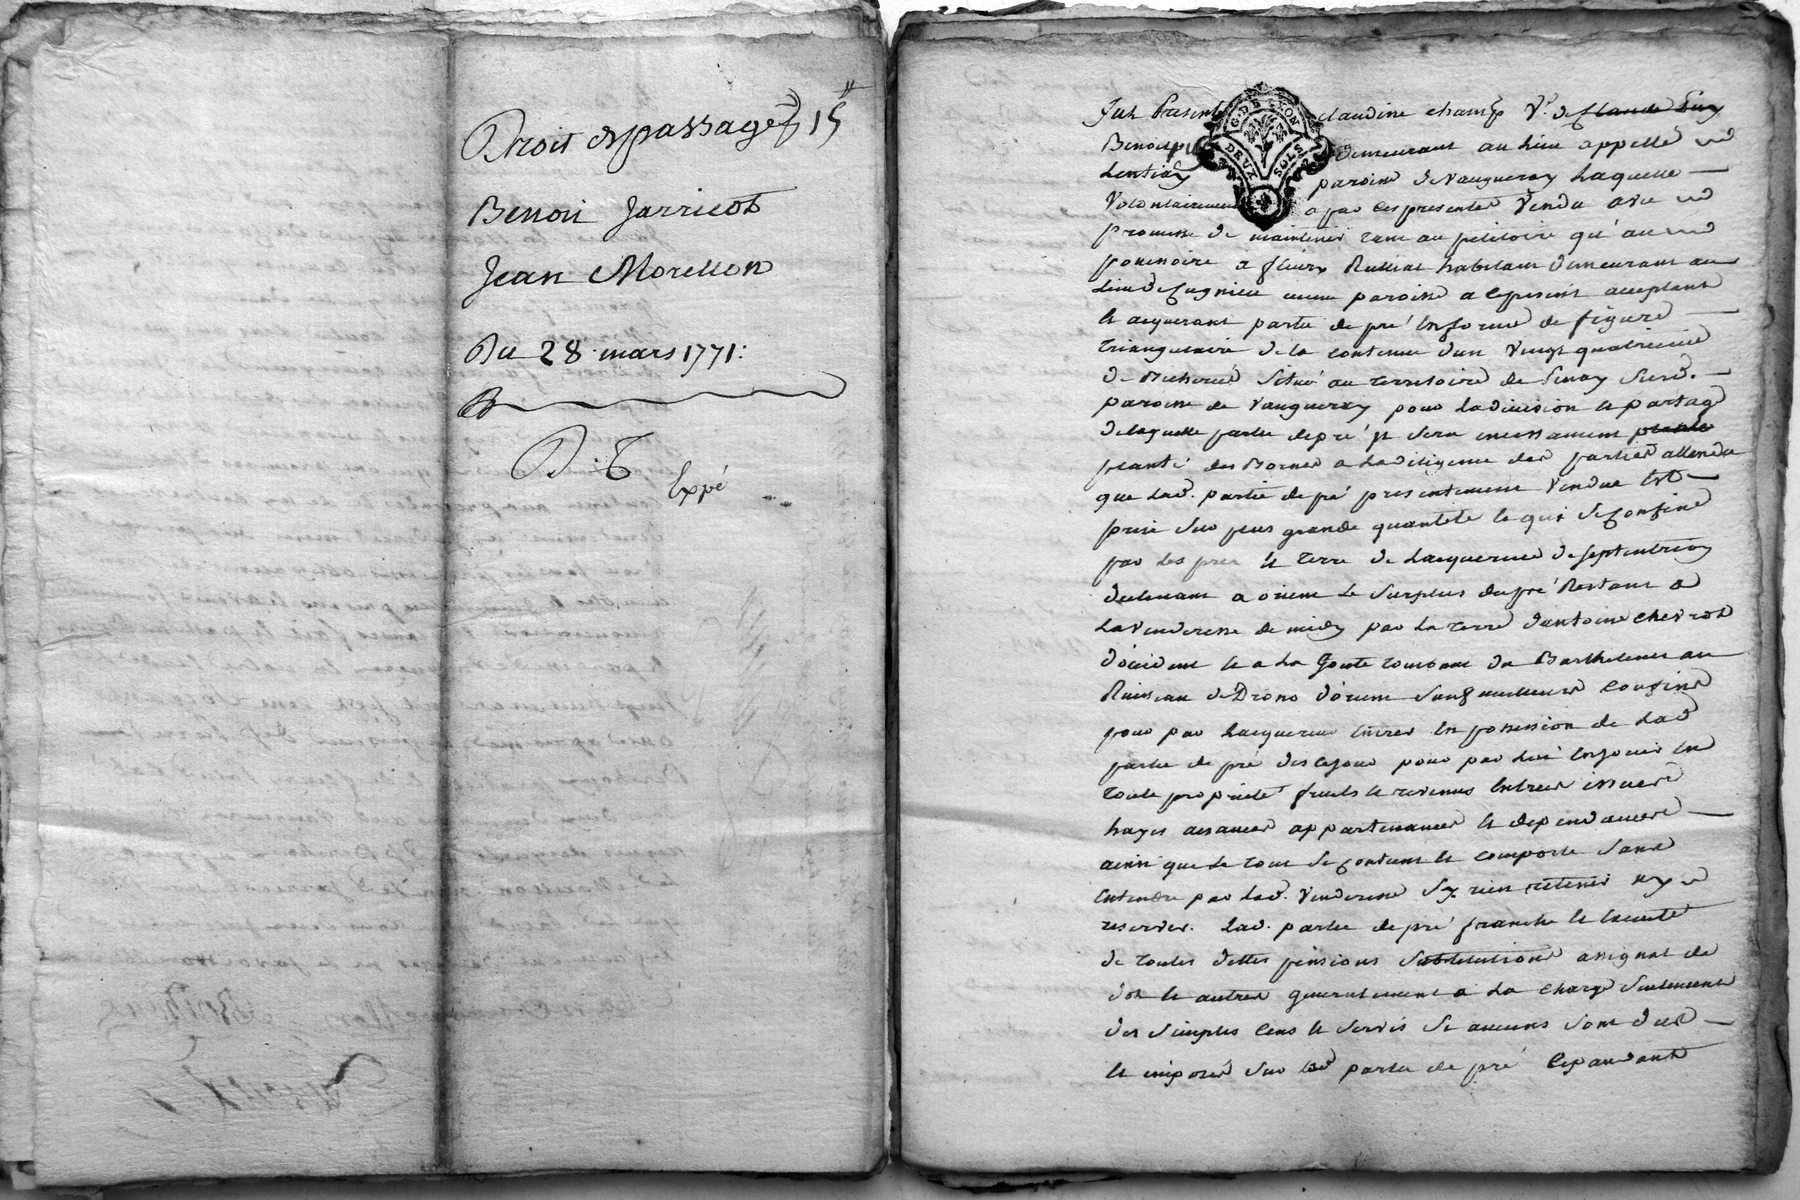 Droit de passage 15
Benoit Jarricot
Jean Morellon
Du 28 mars 1771:
D: C
Expé
G. DE LYON
DEUX SOLS
Fut Presente claudine champ Ve. de
Benoit demeurant au lieu appellé
Lentiay paroisse de Vaugneray Laquelle
Volontairement a par ces presentes Vendu avec
promesse de maintenir tant au petitoire qu'au
possessoire a fleury Rulliat habitant demeurant au
lieu de paroisse a ce present acceptant
et acquerant partie de pré En forme de figure
triangulaire de la contenue d'un Vingt quatrieme
de Bicherée Situé au territoire de Susd.
paroisse de Vaugneray pour La division et partage
de laquelle partie de pré Il sera incessament
planté des Bornes a La diligence des parties attendu
que Lad. partie de pré presentement Vendue Est
prise sur plus grande quantité et qui Se Confine
par Les pré et terre de Lacquereur de Septentrion
declinant a orient Le Surplus du pré Restant a
La Venderesse de midy par La terre d'antoine chevrot
d'occident et a La Goute tombant du Barthelemi au
Ruisseau de Drono d'orient Sauf meilleurs Confins
pour par Lacquereur Entrer En possession de Lad
partie de pré des ce jour pour par Lui En jouir En
toute proprieté fruits et revenus Entrées issues
hayes aisances appartenances et dependances
ainsi que Le tout Se Contient et comporte Sans
Entendre par Lad. Venderesse Sy rien retenir ny
reserver. Lad. partie de pré franche et Exempte
de toutes dettes pensions Substitutions assignat de
dot et autres generalement a La charge Seulement
des Simples Cens et Servis Si aucuns Sont dus
et imposés Sur Lad partie de pré Cependant